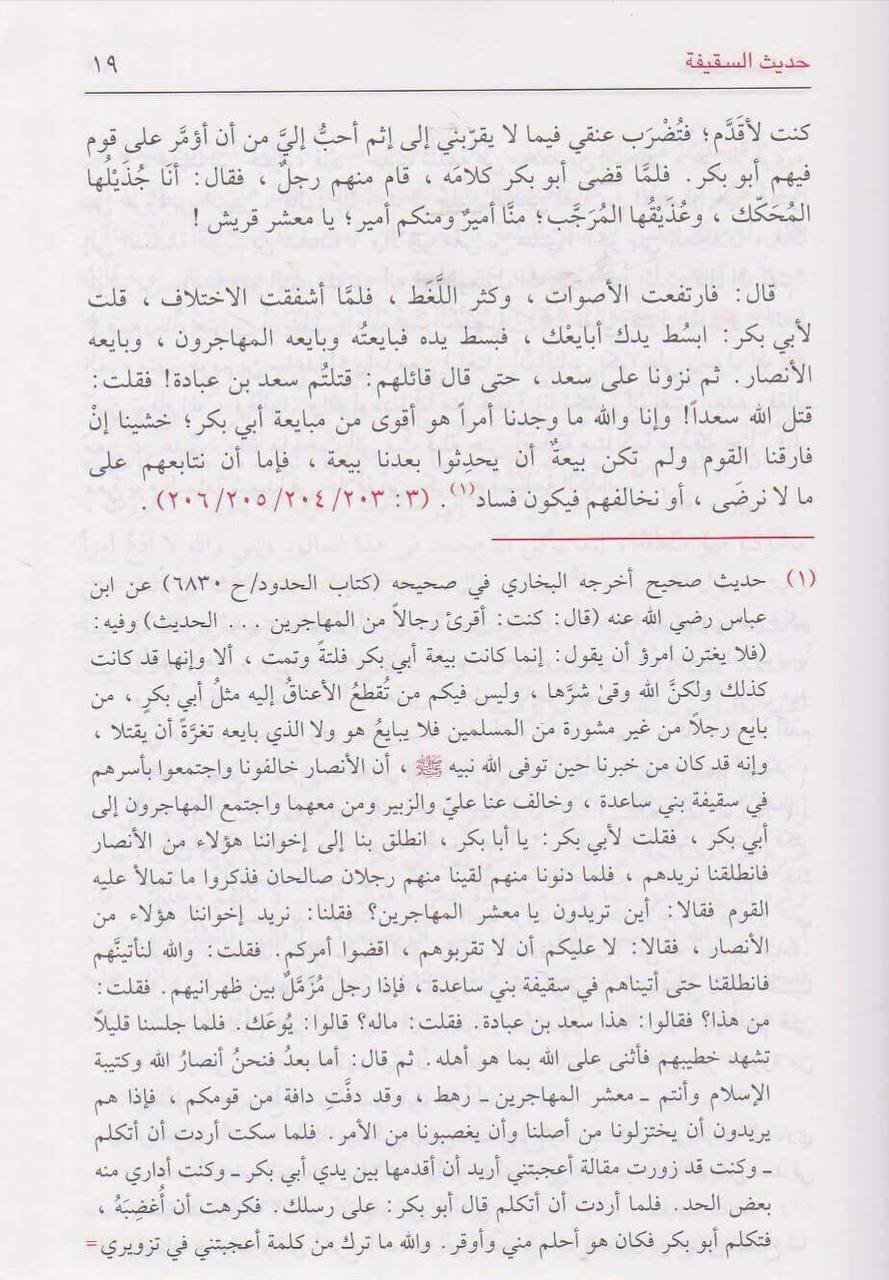 حديث السقيفة ١٩
كنت لأقَدَّم؛ فتُضْرَب عنقي فيما لا يقرّبني إلى إثم أحبُّ إليَّ من أن أؤمَّر على قوم
فيهم أبو بكر. فلمَّا قضى أبو بكر كلامَه، قام منهم رجلٌ، فقال: أنا جُذَيْلُها
المُحَكّك، وعُذَيْقُها المُرَجَّب؛ منَّا أميرٌ ومنكم أمير؛ يا معشر قريش!
قال: فارتفعت الأصوات، وكثر اللَّغَط، فلمَّا أشفقت الاختلاف، قلت
لأبي بكر: ابسُط يدك أبايعْك، فبسط يده فبايعتُه وبايعه المهاجرون، وبايعه
الأنصار. ثم نزونا على سعد، حتى قال قائلهم: قتلتُم سعد بن عبادة! فقلت:
قتل الله سعداً! وإنا والله ما وجدنا أمراً هو أقوى من مبايعة أبي بكر؛ خشينا إنْ
فارقنا القوم ولم تكن بيعةٌ أن يحدِثوا بعدنا بيعة، فإما أن نتابعهم على
ما لا نرضَى، أو نخالفهم فيكون فساد(١). (٣: ٢٠٣/ ٢٠٤/ ٢٠٥/ ٢٠٦).
(١) حديث صحيح أخرجه البخاري في صحيحه (كتاب الحدود/ح ٦٨٣٠) عن ابن
عباس رضي الله عنه (قال: كنت: أقرئ رجالاً من المهاجرين ... الحديث) وفيه:
(فلا يغترن امرؤ أن يقول: إنما كانت بيعة أبي بكر فلتةً وتمت، ألا وإنها قد كانت
كذلك ولكنَّ الله وقىٰ شرَّها، وليس فيكم من تُقطَعُ الأعناقُ إليه مثلُ أبي بكرٍ، من
بايع رجلاً من غير مشورة من المسلمين فلا يبايعُ هو ولا الذي بايعه تغرَّةً أن يقتلا،
وإنه قد كان من خبرنا حين توفى الله نبيه ﷺ، أن الأنصار خالفونا واجتمعوا بأسرهم
في سقيفة بني ساعدة، وخالف عنا عليّ والزبير ومن معهما واجتمع المهاجرون إلى
أبي بكر، فقلت لأبي بكر: يا أبا بكر، انطلق بنا إلى إخواننا هؤلاء من الأنصار
فانطلقنا نريدهم، فلما دنونا منهم لقينا منهم رجلان صالحان فذكروا ما تمالأ عليه
القوم فقالا: أين تريدون يا معشر المهاجرين؟ فقلنا: نريد إخواننا هؤلاء من
الأنصار، فقالا: لا عليكم أن لا تقربوهم، اقضوا أمركم. فقلت: والله لنأتينَّهم
فانطلقنا حتى أتيناهم في سقيفة بني ساعدة، فإذا رجل مُزَمَّلٌ بين ظهرانيهم. فقلت:
من هذا؟ فقالوا: هذا سعد بن عبادة. فقلت: ماله؟ قالوا: يُوعَك. فلما جلسنا قليلاً
تشهد خطيبهم فأثنى على الله بما هو أهله. ثم قال: أما بعدُ فنحنُ أنصارُ الله وكتيبة
الإسلام وأنتم ـ معشر المهاجرين ـ رهط، وقد دفَّتِ دافة من قومكم، فإذا هم
يريدون أن يختزلونا من أصلنا وأن يغصبونا من الأمر. فلما سكت أردت أن أتكلم
ـ وكنت قد زورت مقالة أعجبتني أريد أن أقدمها بين يدي أبي بكر ـ وكنت أداري منه
بعض الحد. فلما أردت أن أتكلم قال أبو بكر: على رسلك. فكرهت أن أُغضِبَهُ،
فتكلم أبو بكر فكان هو أحلم مني وأوقر. والله ما ترك من كلمة أعجبتني في تزويري =